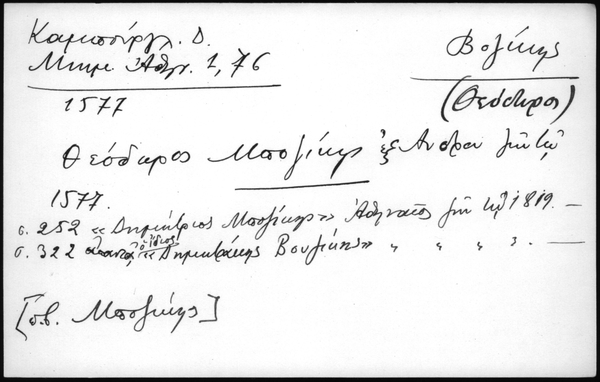 Καμπούργλ. Δ.
Μνημ. Ἀθην. 1, 76
Βοζίκης
(Θεόδωρος)
1577
Θεόδωρος Μποζίκης ἐξ Ἄνδρου ζῇ τῷ
1577.
σ. 252 «Δημήτριος Μποζίκης» Ἀθηναῖος ζῇ τῷ 1819. —
σ. 322 ὁ ἴδιος «Δημητράκης Βουζίκης» " " " " . —
[π.β. Μποζίκης]